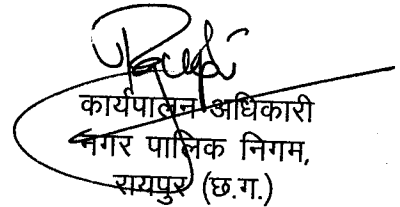 कार्यपालन अधिकारी
नगर पालिक निगम,
रायपुर (छ.ग.)